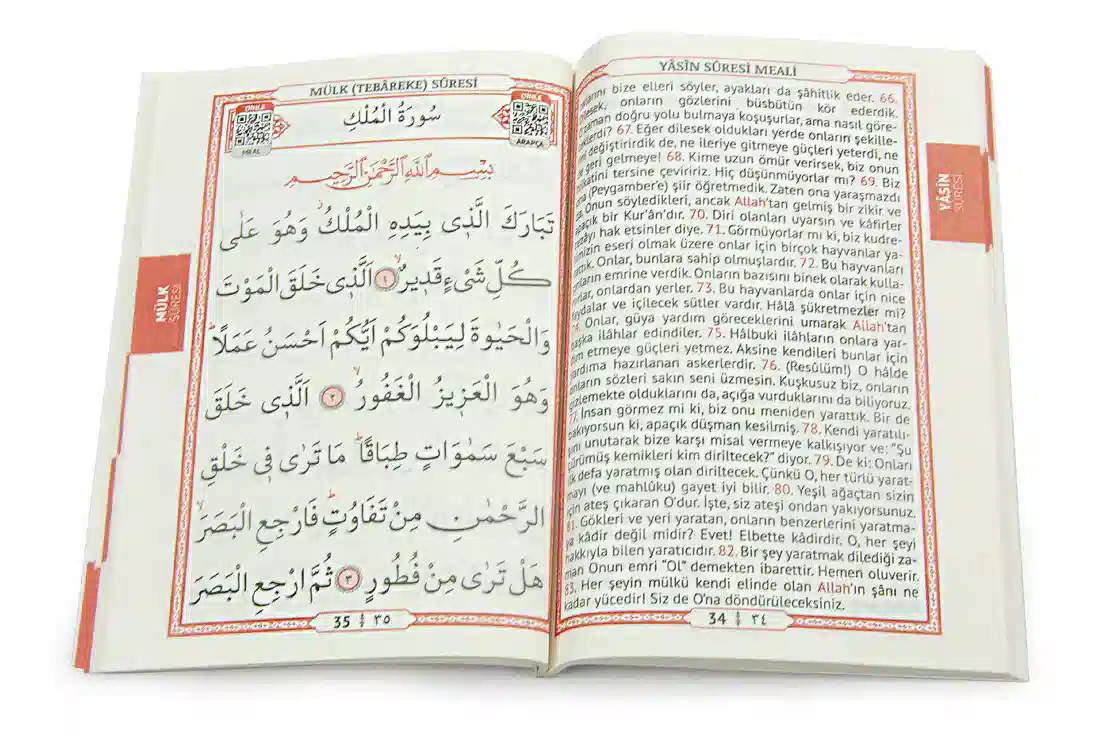 YÂSÎN SÛRESİ MEALİ
bize elleri söyler, ayakları da şâhitlik eder. 66.
onların gözlerini büsbütün kör ederdik.
zaman doğru yolu bulmaya koşuşurlar, ama nasıl göre-
67. Eğer dilesek oldukları yerde onların şekille-
değiştirirdik de, ne ileriye gitmeye güçleri yeterdi, ne
geri gelmeye! 68. Kime uzun ömür verirsek, biz onun
tersine çeviririz. Hiç düşünmüyorlar mı? 69. Biz
(Peygamber'e) şiir öğretmedik. Zaten ona yaraşmazdı
Onun söyledikleri, ancak Allah'tan gelmiş bir zikir ve
apaçık bir Kur'ân'dır. 70. Diri olanları uyarsın ve kâfirler
cezâyı hak etsinler diye. 71. Görmüyorlar mı ki, biz kudre-
timizin eseri olmak üzere onlar için birçok hayvanlar ya-
Onlar, bunlara sahip olmuşlardır. 72. Bu hayvanları
onların emrine verdik. Onların bazısını binek olarak kulla-
onlardan yerler. 73. Bu hayvanlarda onlar için nice
faydalar ve içilecek sütler vardır. Hâlâ şükretmezler mi?
74. Onlar, güya yardım göreceklerini umarak Allah'tan
başka ilâhlar edindiler. 75. Hâlbuki ilâhların onlara yar-
dım etmeye güçleri yetmez. Aksine kendileri bunlar için
yardıma hazırlanan askerlerdir. 76. (Resûlüm!) O hâlde
onların sözleri sakın seni üzmesin. Kuşkusuz biz, onların
gizlemekte olduklarını da, açığa vurduklarını da biliyoruz.
77. İnsan görmez mi ki, biz onu meniden yarattık. Bir de
bakıyorsun ki, apaçık düşman kesilmiş. 78. Kendi yaratılı-
şını unutarak bize karşı misal vermeye kalkışıyor ve: "Şu
çürümüş kemikleri kim diriltecek?" diyor. 79. De ki: Onları
ilk defa yaratmış olan diriltecek. Çünkü O, her türlü yarat-
mayı (ve mahlûku) gayet iyi bilir. 80. Yeşil ağaçtan sizin
için ateş çıkaran O'dur. İşte, siz ateşi ondan yakıyorsunuz.
81. Gökleri ve yeri yaratan, onların benzerlerini yaratma-
ya kâdir değil midir? Evet! Elbette kâdirdir. O, her şeyi
hakkıyla bilen yaratıcıdır. 82. Bir şey yaratmak dilediği za-
man Onun emri "OL" demekten ibarettir. Hemen oluverir.
83. Her şeyin mülkü kendi elinde olan Allah'ın şânı ne
kadar yücedir! Siz de O'na döndürüleceksiniz.
34 ٣٤
YÂSÎN
SÛRESİ
MÜLK (TEBÂREKE) SÛRESİ
DİNLE
ARAPÇA
سُورَةُ الْمُلْكِ
DİNLE
MEAL
بِسْــمِ اللّٰهِ الرَّحْمٰنِ الرَّحٖيمِ
تَبَارَكَ الَّذٖى بِيَدِهِ الْمُلْكُ وَهُوَ عَلٰى
كُلِّ شَىْءٍ قَدٖيرٌ ١ اَلَّذٖى خَلَقَ الْمَوْتَ
وَالْحَيٰوةَ لِيَبْلُوَكُمْ اَيُّكُمْ اَحْسَنُ عَمَلًا
وَهُوَ الْعَزٖيزُ الْغَفُورُ ٢ اَلَّذٖى خَلَقَ
سَبْعَ سَمٰوَاتٍ طِبَاقًا مَا تَرٰى فٖى خَلْقِ
الرَّحْمٰنِ مِنْ تَفَاوُتٍ فَارْجِعِ الْبَصَرَ
هَلْ تَرٰى مِنْ فُطُورٍ ٣ ثُمَّ ارْجِعِ الْبَصَرَ
35 ٣٥
MÜLK
SÛRESİ